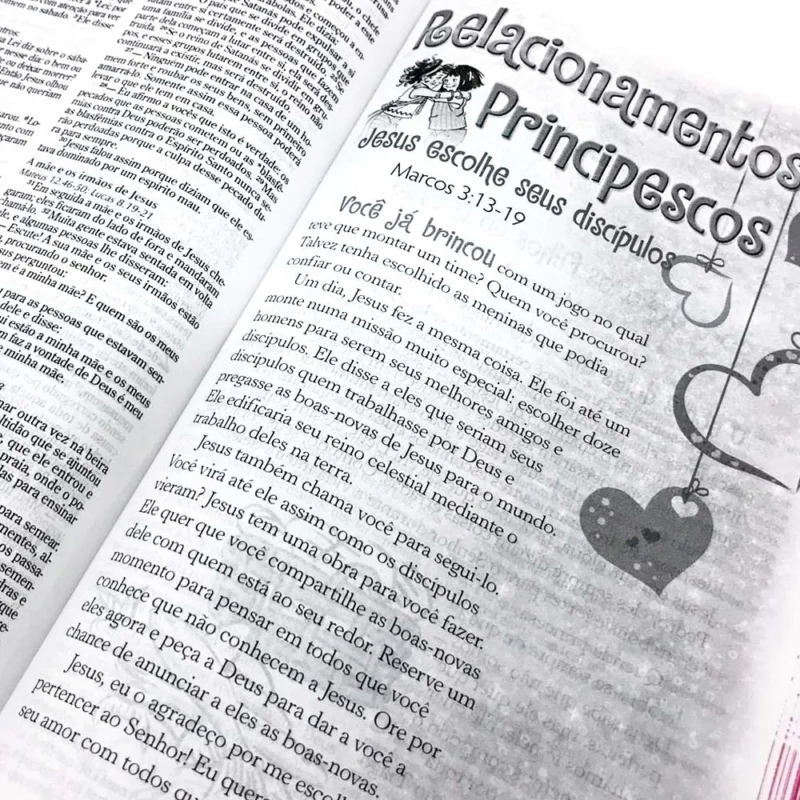 e com atenção para ver
no sábado. ⁴Ele disse
Lei diz sobre o sába-
nesse dia: o bem ou
ou deixar morrer?
Então Jesus olhou
que não queriam
país que se divide em grupos
uma família se divide, e as pessoas que fazem
parte dela começam a lutar entre si, ela será des-
truída. ²⁶Se o reino de Satanás se dividir em gru-
pos, e esses grupos lutarem entre si, o reino não
continuará a existir, mas será destruído.
²⁷— Ninguém pode entrar na casa de um ho-
mem forte e roubar os seus bens, sem primeiro
amarrá-lo. Somente assim essa pessoa poderá
levar o que ele tem em casa.
²⁸— Eu afirmo a vocês que isto é verdade: os
pecados que as pessoas cometem ou as blasfê-
mias contra Deus poderão ser perdoados. ²⁹Mas
as blasfêmias contra o Espírito Santo nunca se-
rão perdoadas porque a culpa desse pecado du-
ra para sempre.
³⁰Jesus falou assim porque diziam que ele es-
tava dominado por um espírito mau.
A mãe e os irmãos de Jesus
Mateus 12.46-50; Lucas 8.19-21
³¹Em seguida a mãe e os irmãos de Jesus che-
garam; eles ficaram do lado de fora e mandaram
chamá-lo. ³²Muita gente estava sentada em volta
dele, e algumas pessoas lhe disseram:
— Escute! A sua mãe e os seus irmãos estão
lá fora, procurando o senhor.
Jesus perguntou:
— Quem é a minha mãe? E quem são os meus
para as pessoas que estavam sen-
dele e disse:
aqui estão a minha mãe e os meus
quem faz a vontade de Deus é meu
e minha mãe.
ensinar outra vez na beira
multidão que se ajuntou
que ele entrou e
praia, onde o po-
para ensinar
para semear.
sementes, al-
passa-
Relacionamentos
Principescos
Jesus escolhe seus discípulos
Marcos 3:13-19
Você já brincou com um jogo no qual
teve que montar um time? Quem você procurou?
Talvez tenha escolhido as meninas que podia
confiar ou contar.
Um dia, Jesus fez a mesma coisa. Ele foi até um
monte numa missão muito especial: escolher doze
homens para serem seus melhores amigos e
discípulos. Ele disse a eles que seriam seus
discípulos quem trabalhasse por Deus e
pregasse as boas-novas de Jesus para o mundo.
Ele edificaria seu reino celestial mediante o
trabalho deles na terra.
Jesus também chama você para segui-lo.
Você virá até ele assim como os discípulos
vieram? Jesus tem uma obra para você fazer.
Ele quer que você compartilhe as boas-novas
dele com quem está ao seu redor. Reserve um
momento para pensar em todos que você
conhece que não conhecem a Jesus. Ore por
eles agora e peça a Deus para dar a você a
chance de anunciar a eles as boas-novas.
Jesus, eu o agradeço por me escolh
pertencer ao Senhor! Eu quero
seu amor com todos qu